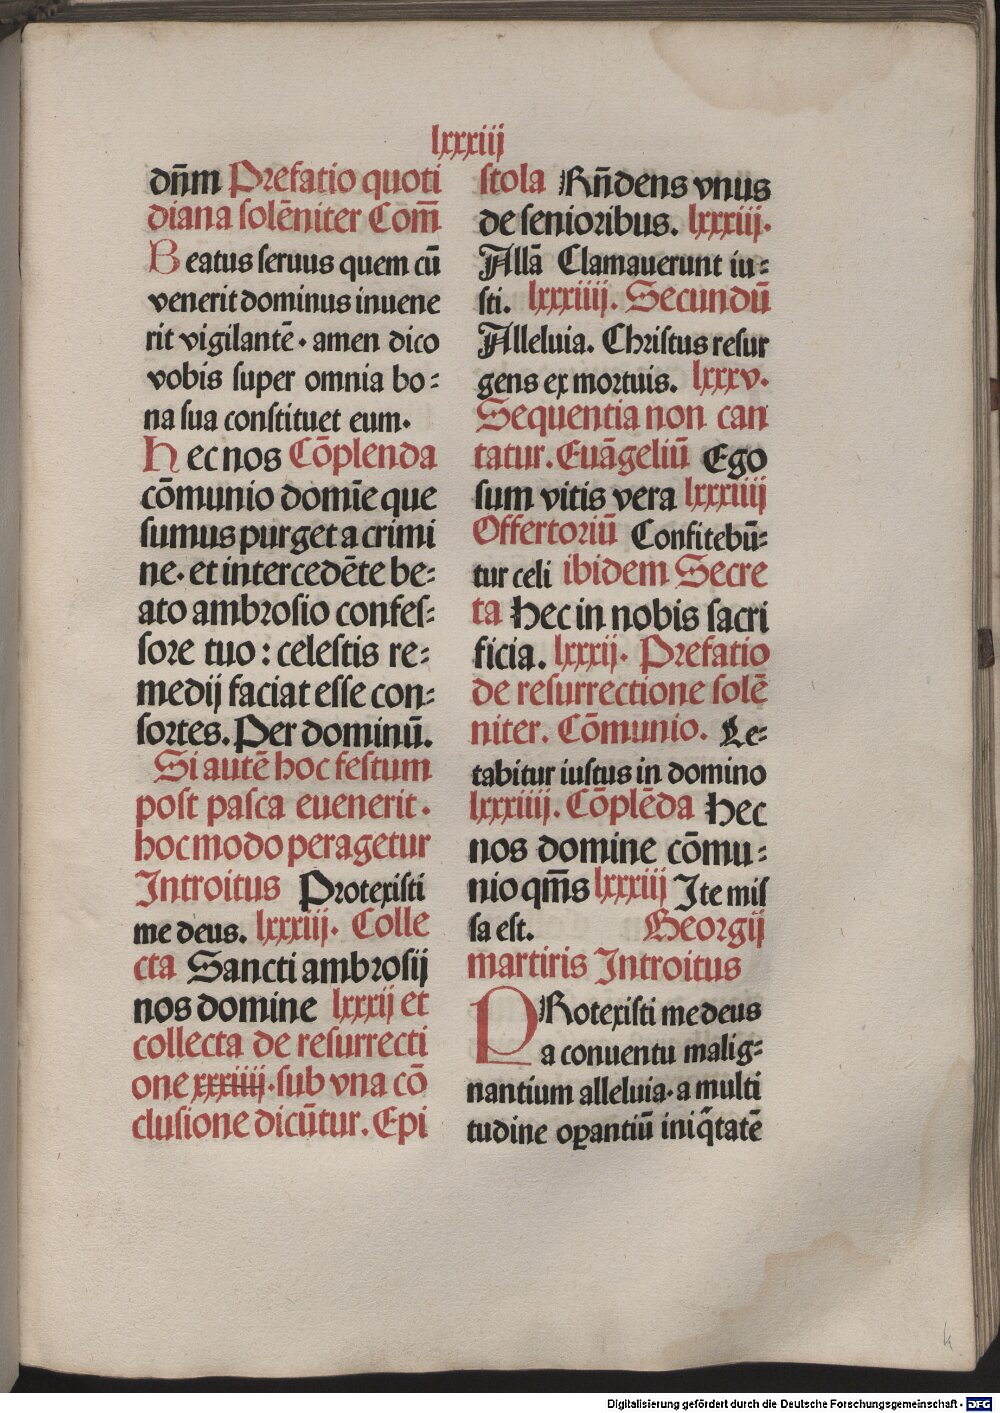 lxxxiij
dn̄m Prefatio quoti
diana solēniter Com̄
Beatus seruus quem cū
venerit dominus inuene
rit vigilantē · amen dico
vobis super omnia bo⸗
na sua constituet eum·
Hec nos Cōplenda
cōmunio domīe que
sumus purget a crimi
ne· et intercedēte be⸗
ato ambrosio confes⸗
sore tuo : celestis re⸗
medij faciat esse con⸗
sortes. Per dominū.
Si autē hoc festum
post pasca euenerit ·
hoc modo peragetur
Introitus Protexisti
me deus. lxxxiij· Colle
cta Sancti ambrosij
nos domine lxxxij et
collecta de resurrecti
one xxxiiij ·sub vna cō
clusione dicūtur. Epi
stola Rn̄dens vnus
de senioribus. lxxxiij·
Allā Clamauerunt iu⸗
sti. lxxxiiij. Secundū
Alleluia. Christus resur
gens ex mortuis. lxxxv.
Sequentia non can
tatur. Euāgeliū Ego
sum vitis vera lxxxiiij
Offertoriū Confitebū⸗
tur celi ibidem Secre
ta Hec in nobis sacri
ficia. lxxxij· Prefatio
de resurrectione solē
niter. Cōmunio. Le⸗
tabitur iustus in domino
lxxxiiij. Cōplēda Hec
nos domine cōmu⸗
nio qm̄s lxxxiij Ite mis
sa est. Georgij
martiris Introitus
PRotexisti me deus
a conuentu malig⸗
nantium alleluia· a multi
tudine oꝑantiū iniq̄tatē
k
Digitalisierung gefördert durch die Deutsche Forschungsgemeinschaft - DFG